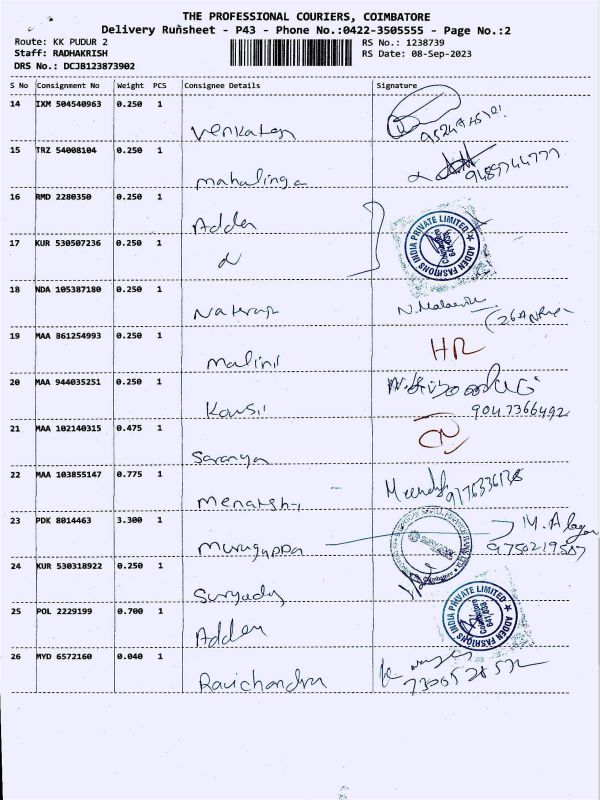 THE PROFESSIONAL COURIERS, COIMBATORE
Delivery Runsheet - P43 - Phone No.:0422-3505555 - Page No.:2
Route: KK PUDUR 2
RS No.: 1238739
Staff: RADHAKRISH
RS Date: 08-Sep-2023
DRS No.: DCJB123873902
S No Consignment No Weight PCS Consignee Details Signature
14 IXM 504540963 0.250 1
Venkatesh
15 TRZ 54008104 0.250 1
Mahalinga
9489744777
16 RMD 2280350 0.250 1
Adden
ADDEN FASHIONS INDIA PRIVATE LIMITED
17 KUR 530507236 0.250 1
18 NDA 105387180 0.250 1
Nataraj
19 MAA 861254993 0.250 1
Malini
HR
20 MAA 944035251 0.250 1
Kousii
9047366492
21 MAA 102140315 0.475 1
Saranya
CN
22 MAA 103855147 0.775 1
Menakshi
9176336138
23 PDK 8014463 3.300 1
Murugappa
M. Alagar
9750219507
24 KUR 530318922 0.250 1
25 POL 2229199 0.700 1
Adden
ADDEN FASHIONS INDIA PRIVATE LIMITED
26 MYD 6572160 0.040 1
Ravichandra